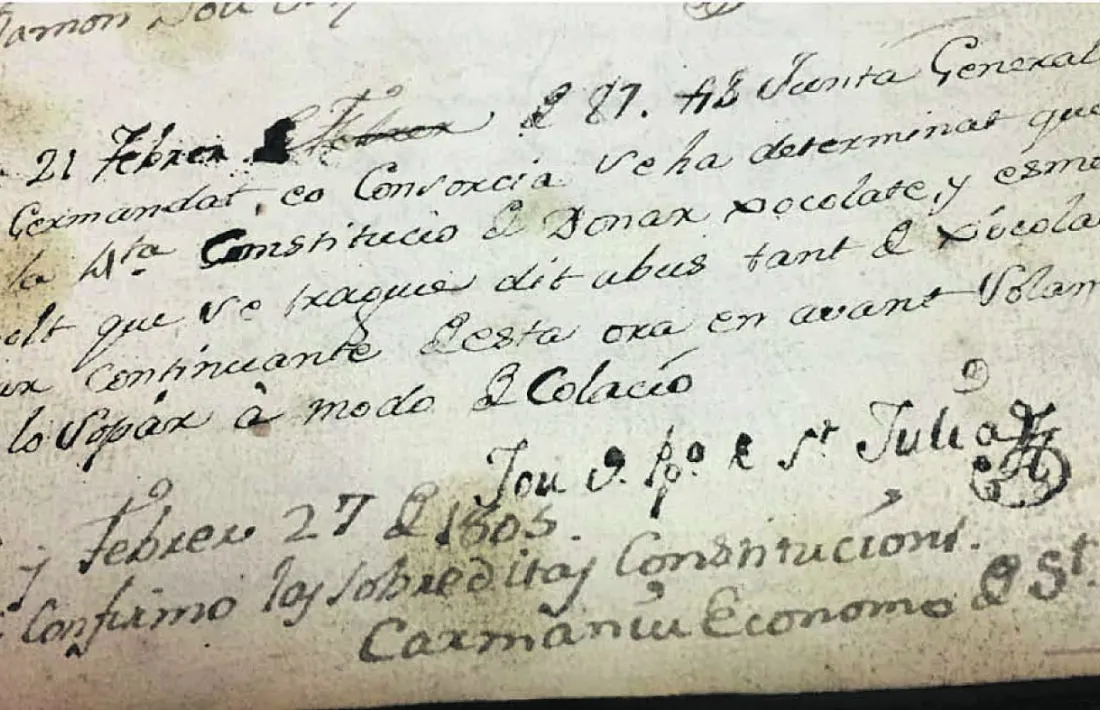 Ramon Jou
21 Febrer de Febrer de 87. Ab Junta General
Germandat, eo Consorcia se ha determinat que
la 4ta Constitucio de Donar xocolate, y esme
olt que se tragues dit abus tant de xocola
ar continuante desta ora en avant Solam
lo Sopar à modo de Colacio
Jou P. po. de St Julia
y Febrer 27 de 1805.
Confirmo las sobreditas Constitucions.
Carmaniu Economo de St.